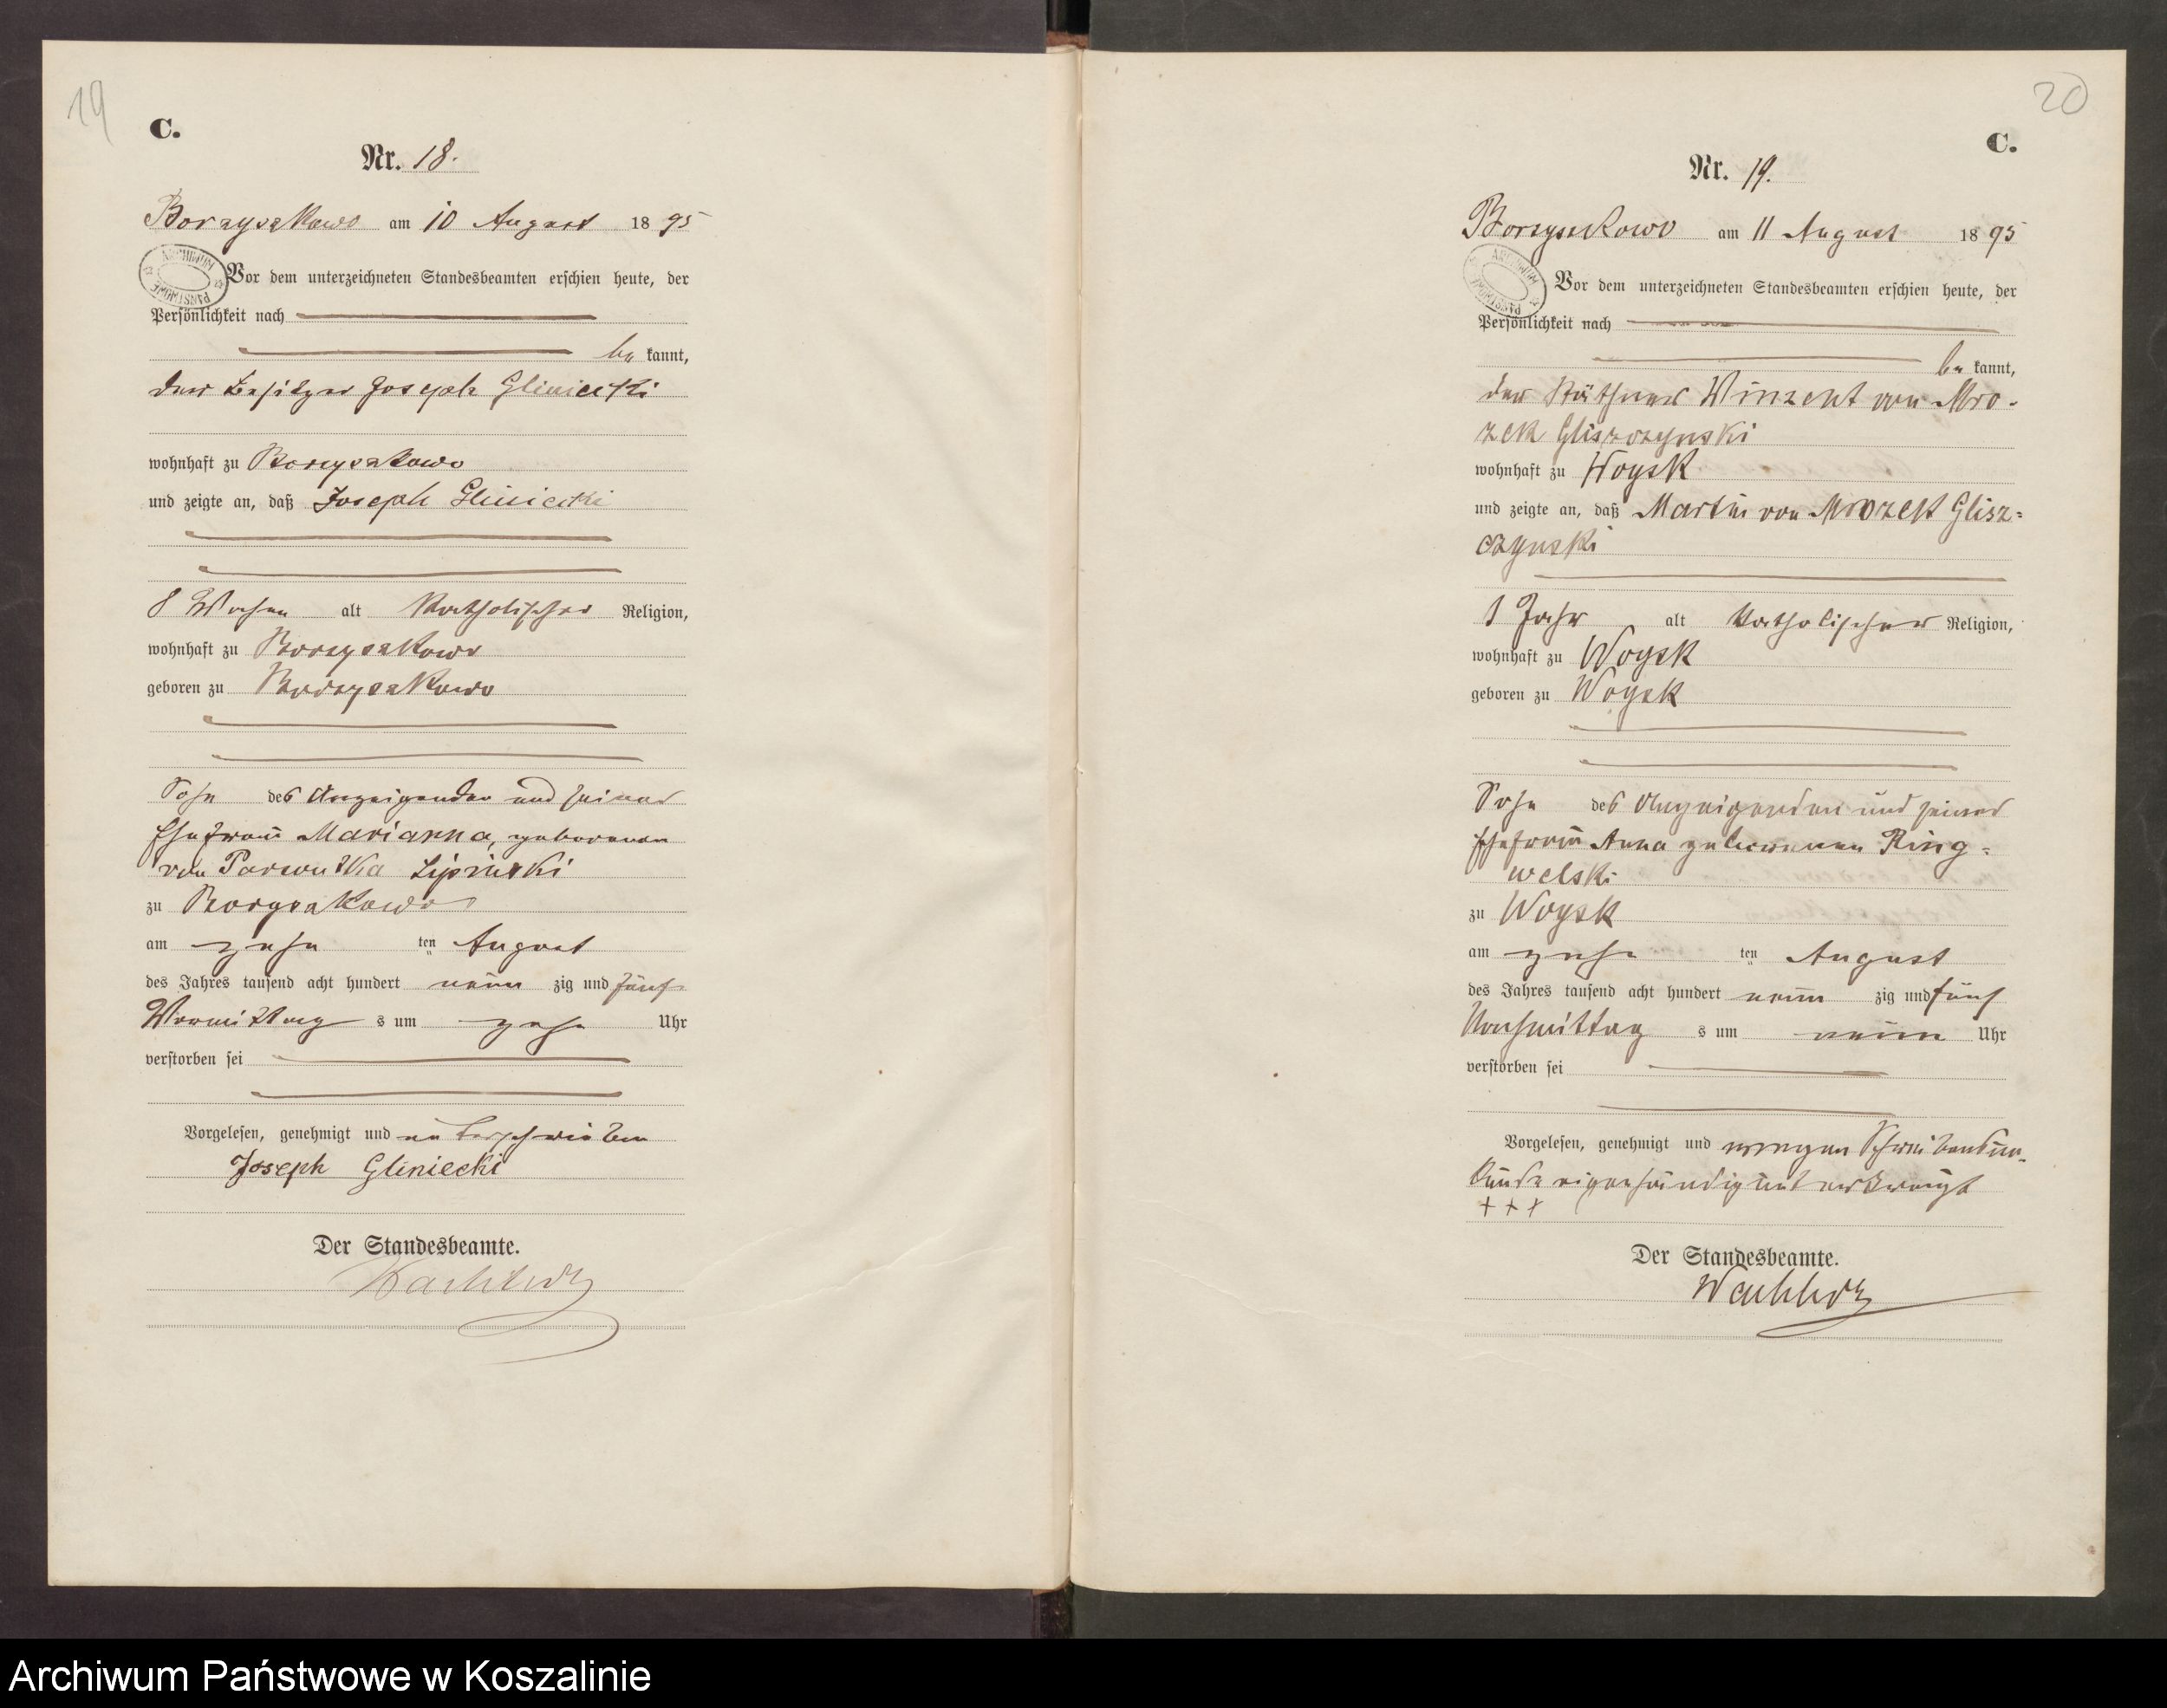 19
C.
Nr. 18.
Borzyszkowo am 10 August 1895
ARCHIWUM PAŃSTWOWE
Vor dem unterzeichneten Standesbeamten erschien heute, der
Persönlichkeit nach
be kannt,
der Besitzer Joseph Gliniecki
wohnhaft zu Borzyszkowo
und zeigte an, daß Joseph Gliniecki
8 Wochen alt katholischer Religion,
wohnhaft zu Borzyszkowo
geboren zu Borzyszkowo
Sohn des Anzeigenden und seiner
Ehefrau Marianna, geborenen
von Lipinski
zu Borzyszkowo
am zehn ten August
des Jahres tausend acht hundert neun zig und fünf
Vormittag s um zehn Uhr
verstorben sei
Vorgelesen, genehmigt und unterschrieben
Joseph Gliniecki
Der Standesbeamte.
20
C.
Nr. 19.
Borzyszkowo am 11 August 1895
ARCHIWUM PAŃSTWOWE
Vor dem unterzeichneten Standesbeamten erschien heute, der
Persönlichkeit nach
be kannt,
der Käthner Winzent von Mro-
zek Gliszczynski
wohnhaft zu Woysk
und zeigte an, daß Martin von Mrozek Glisz=
czynski
1 Jahr alt katholischer Religion,
wohnhaft zu Woysk
geboren zu Woysk
Sohn des Anzeigenden und seiner
Ehefrau Anna geborenen Ring=
welski
zu Woysk
am zehn ten August
des Jahres tausend acht hundert neun zig und fünf
Nachmittag s um neun Uhr
verstorben sei
Vorgelesen, genehmigt und wegen Schreibensun-
kunde eigenhändig unterkreuzt
+++
Der Standesbeamte.
Archiwum Państwowe w Koszalinie